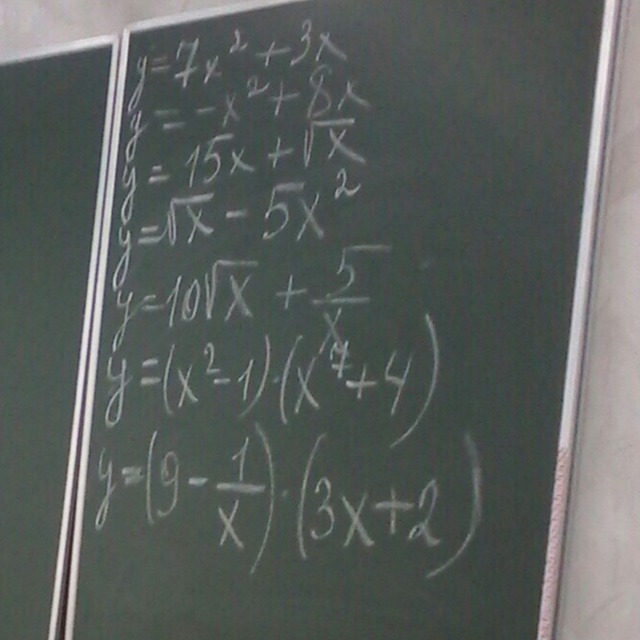 y=7x²+3x
y=-x²+8x
y=15x+√x
y=√x-5x²
y=10√x+5/x
y=(x²-1)·(x⁷+4)
y=(9-1/x)·(3x+2)